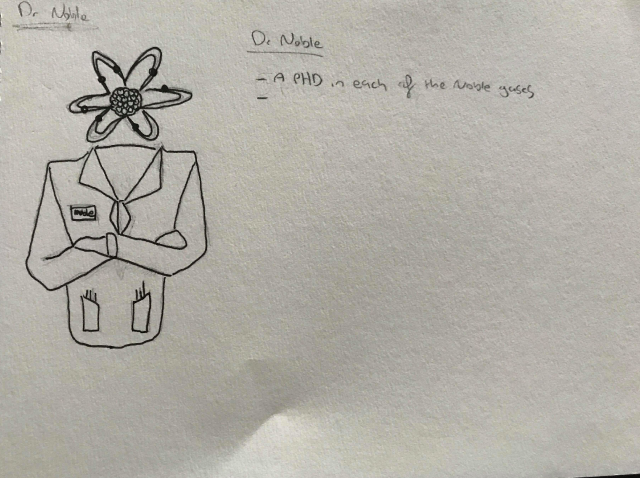 Dr Noble
Dr Noble
- A PHD in each of the Noble gases
-